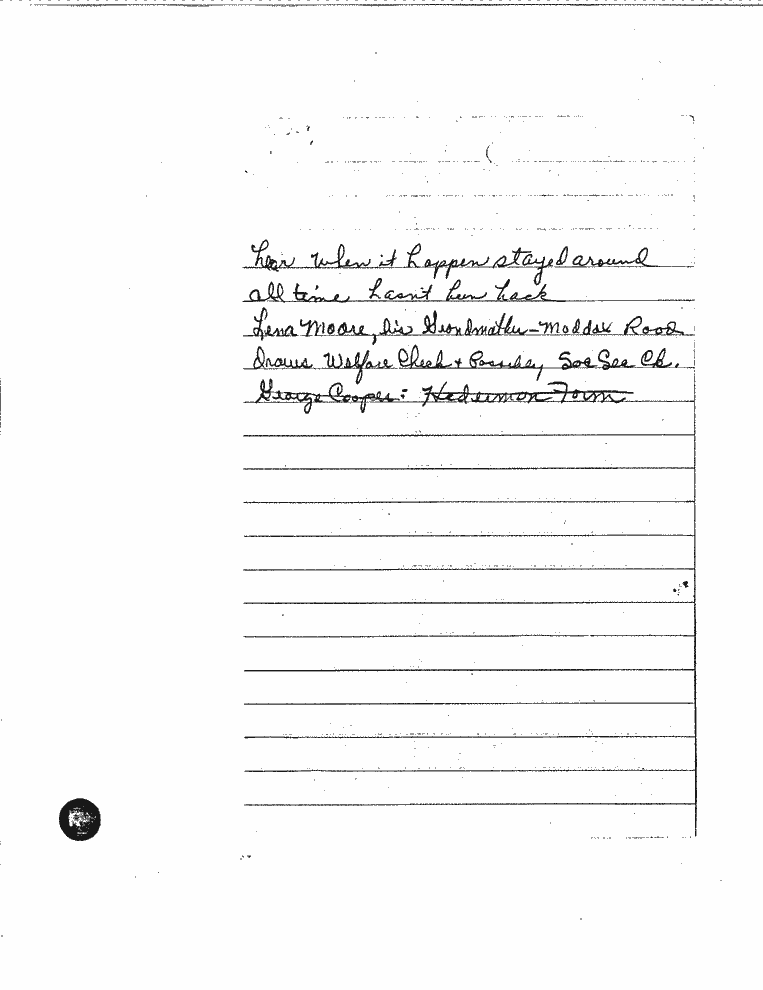 hear when it happen stayed around
all time hasn't been back
Lena Moore, his Grandmother - Maddox Road
draws Welfare Check + Possibley Soc Sec Ck.
George Cooper: Hederman Farm